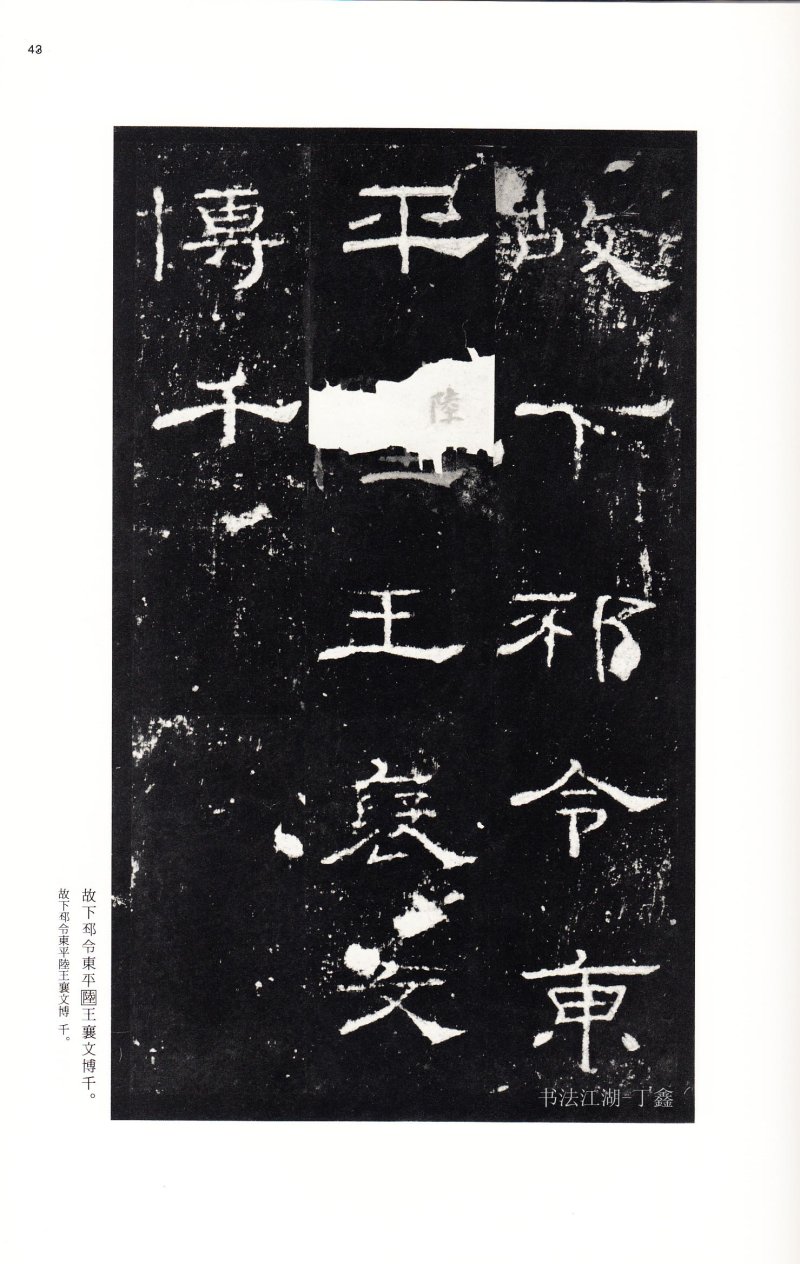 43
故下邳令東
平陸王襄文
博千
故下邳令東平陸王襄文博千。
故下邳令東平陸王襄文博 千。
书法江湖-丁鑫